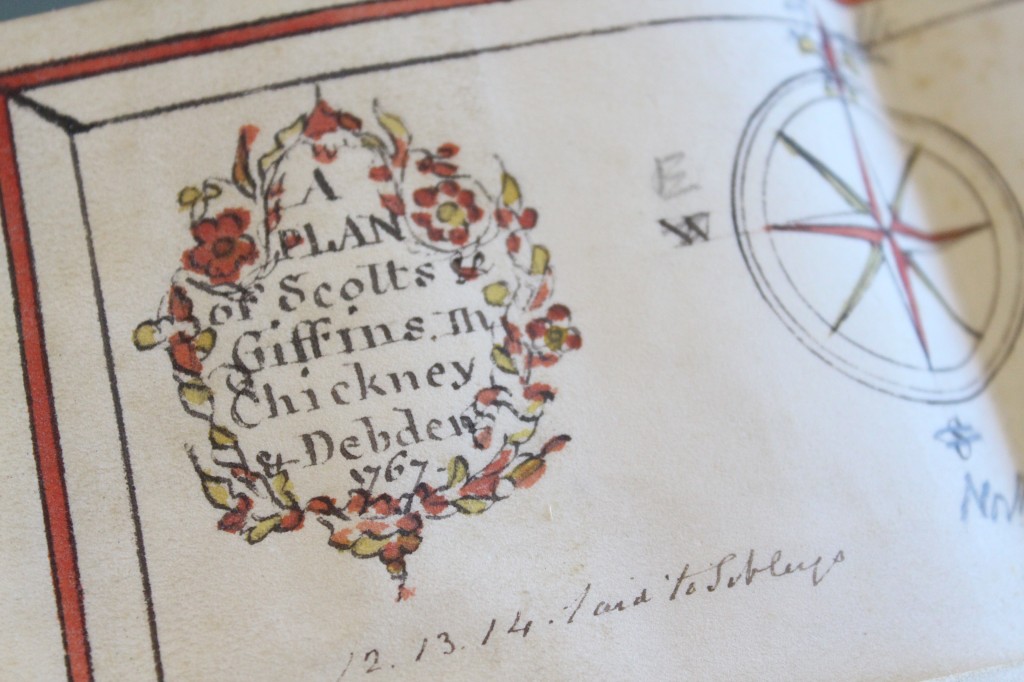 A
PLAN
of Scotts &
Giffins, in
Chickney
& Debden
1767
E
W
12. 13. 14. laid to Sibleys